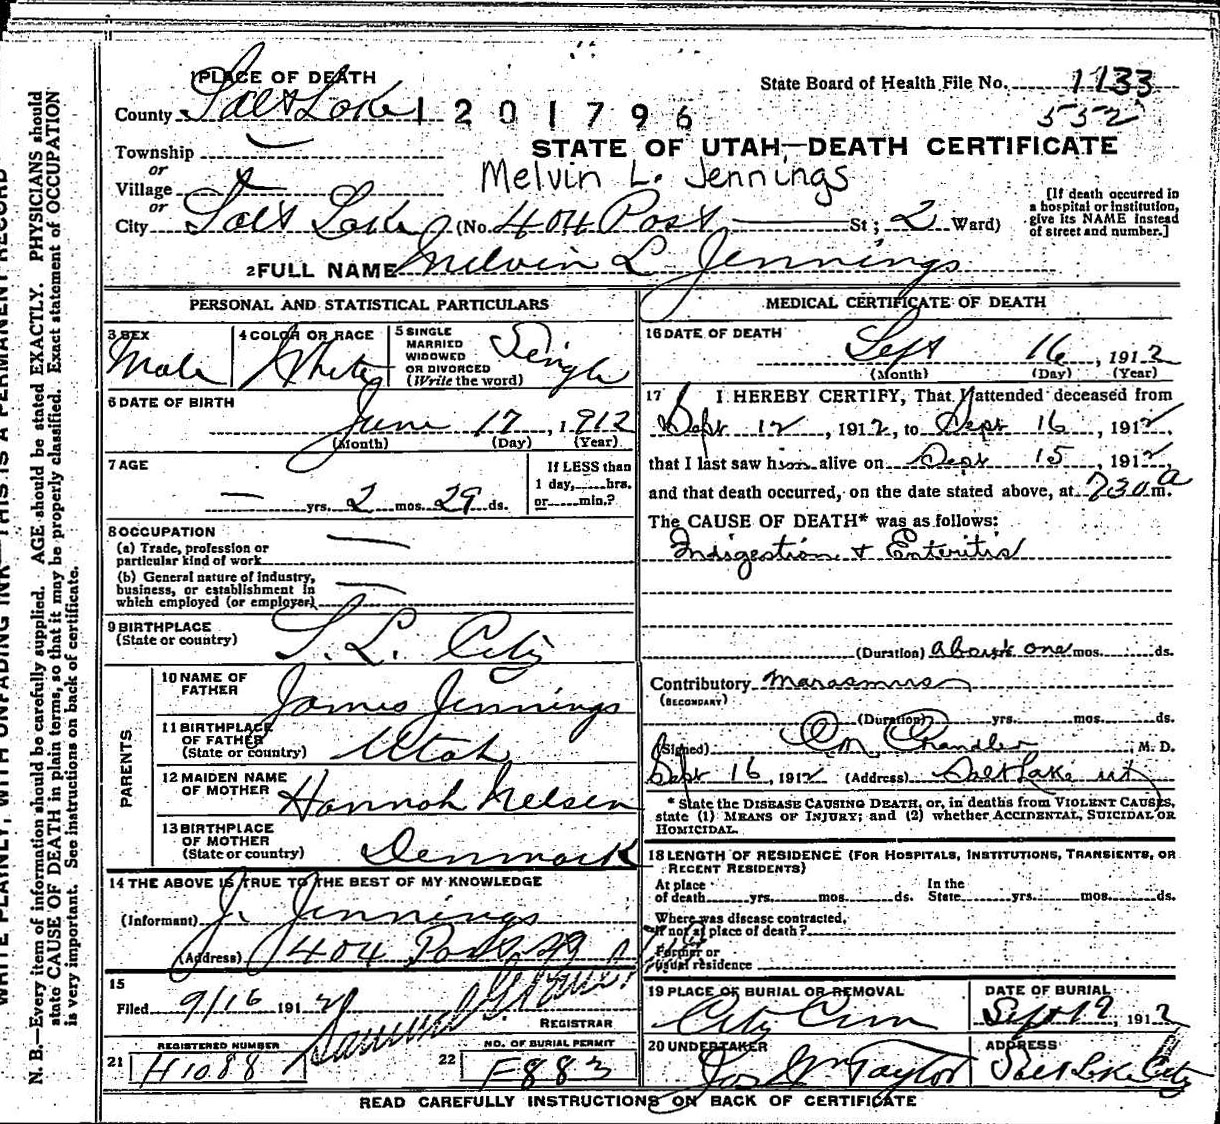 1 PLACE OF DEATH
State Board of Health File No. 1133
County Salt Lake 1201796
552
Township —
STATE OF UTAH—DEATH CERTIFICATE
or
Village —
Melvin L. Jennings
or
City Salt Lake (No. 404 Post St; 2 Ward)
[If death occurred in
a hospital or institution,
give its NAME instead
of street and number.]
2 FULL NAME Melvin L Jennings
PERSONAL AND STATISTICAL PARTICULARS
3 SEX
Male
4 COLOR OR RACE
White
5 SINGLE
MARRIED
WIDOWED
OR DIVORCED
(Write the word)
Single
6 DATE OF BIRTH
June 17, 1912
(Month) (Day) (Year)
7 AGE
— yrs. 2 mos. 29 ds.
If LESS than
1 day, hrs.
or min.?
8 OCCUPATION
(a) Trade, profession or
particular kind of work —
(b) General nature of industry,
business, or establishment in
which employed (or employer) —
9 BIRTHPLACE
(State or country)
S. L. City
PARENTS
10 NAME OF
FATHER
James Jennings
11 BIRTHPLACE
OF FATHER
(State or country)
Utah
12 MAIDEN NAME
OF MOTHER
Hannah Nelsen
13 BIRTHPLACE
OF MOTHER
(State or country)
Denmark
14 THE ABOVE IS TRUE TO THE BEST OF MY KNOWLEDGE
(Informant) J. Jennings
(Address) 404
15
Filed 9/16 191
REGISTRAR
REGISTERED NUMBER
21 H1088
NO. OF BURIAL PERMIT
22 F883
MEDICAL CERTIFICATE OF DEATH
16 DATE OF DEATH
Sept 16, 1912
(Month) (Day) (Year)
17 I HEREBY CERTIFY, That I attended deceased from
Sept 12, 1912, to Sept 16, 1912,
that I last saw him alive on Sept 15, 1912,
and that death occurred, on the date stated above, at 730 a m.
The CAUSE OF DEATH* was as follows:
Indigestion & Enteritis
(Duration) about one mos. ds.
Contributory Marasmus
(SECONDARY)
(Duration) yrs. mos. ds.
(Signed) CM Chandler, M. D.
Sept 16, 1912 (Address) Salt Lake ut
* State the DISEASE CAUSING DEATH, or, in deaths from VIOLENT CAUSES,
state (1) MEANS OF INJURY; and (2) whether ACCIDENTAL, SUICIDAL OR
HOMICIDAL.
18 LENGTH OF RESIDENCE (FOR HOSPITALS, INSTITUTIONS, TRANSIENTS, OR
RECENT RESIDENTS)
At place
of death yrs. mos. ds.
In the
State yrs. mos. ds.
Where was disease contracted,
if not at place of death?
Former or
usual residence
19 PLACE OF BURIAL OR REMOVAL
City Cem
DATE OF BURIAL
Sept 1912
20 UNDERTAKER
Jos Wm Taylor
ADDRESS
Salt Lake City
READ CAREFULLY INSTRUCTIONS ON BACK OF CERTIFICATE
WRITE PLAINLY, WITH UNFADING INK—THIS IS A PERMANENT RECORD
N. B.—Every item of information should be carefully supplied. AGE should be stated EXACTLY. PHYSICIANS should
state CAUSE OF DEATH in plain terms, so that it may be properly classified. Exact statement of OCCUPATION
is very important. See instructions on back of certificate.